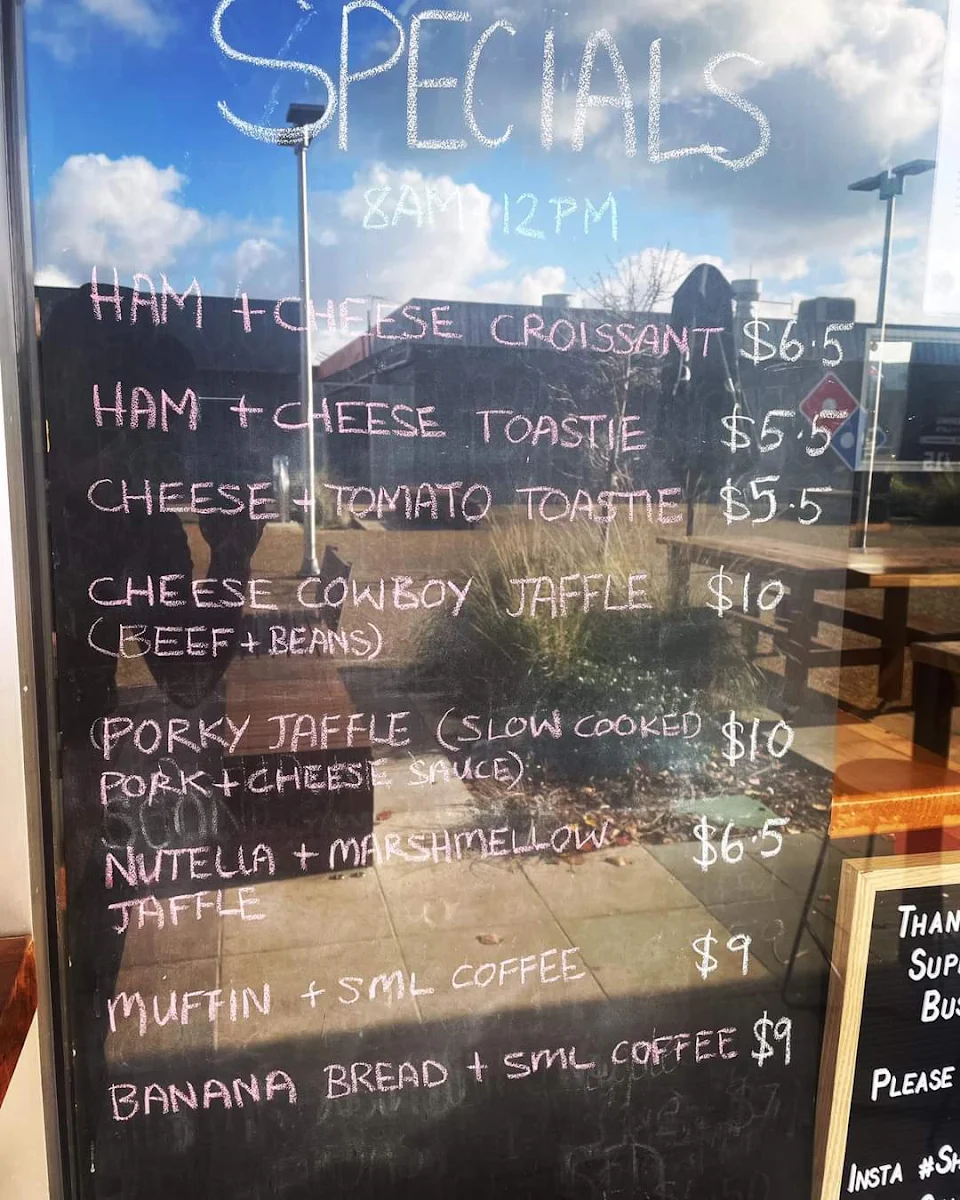 SPECIALS
8AM-12PM
HAM + CHEESE CROISSANT $6.5
HAM + CHEESE TOASTIE $5.5
CHEESE + TOMATO TOASTIE $5.5
CHEESE COWBOY JAFFLE $10
(BEEF + BEANS)
PORKY JAFFLE (SLOW COOKED $10
PORK + CHEESE SAUCE)
NUTELLA + MARSHMELLOW $6.5
JAFFLE
MUFFIN + SML COFFEE $9
BANANA BREAD + SML COFFEE $9
THAN
SUP
BUS
PLEASE
INSTA #SH